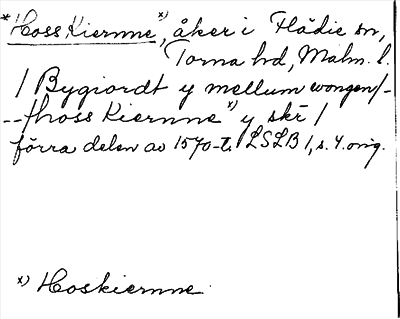 *Hoss Kiernne x), åker i Flädie sn,
Torna hd, Malm. l.
/ Bygiordt y mellum wongen/-
--/hoss Kiernne" x) y skr /
förra delen av 1570-t. LSLB 1, s. 4. orig.
x) Hoskiernne